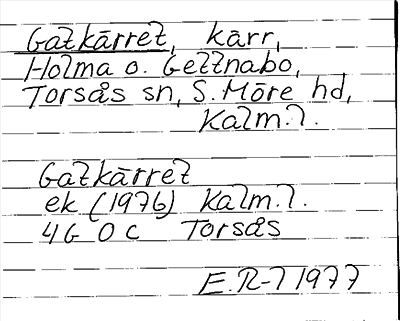 Gatkärret, kärr,
Holma o. Gettnabo,
Torsås sn, S. Möre hd,
Kalm. l.
Gatkärret
ek (1976) Kalm. l.
4G 0c Torsås
E. R-l 1977